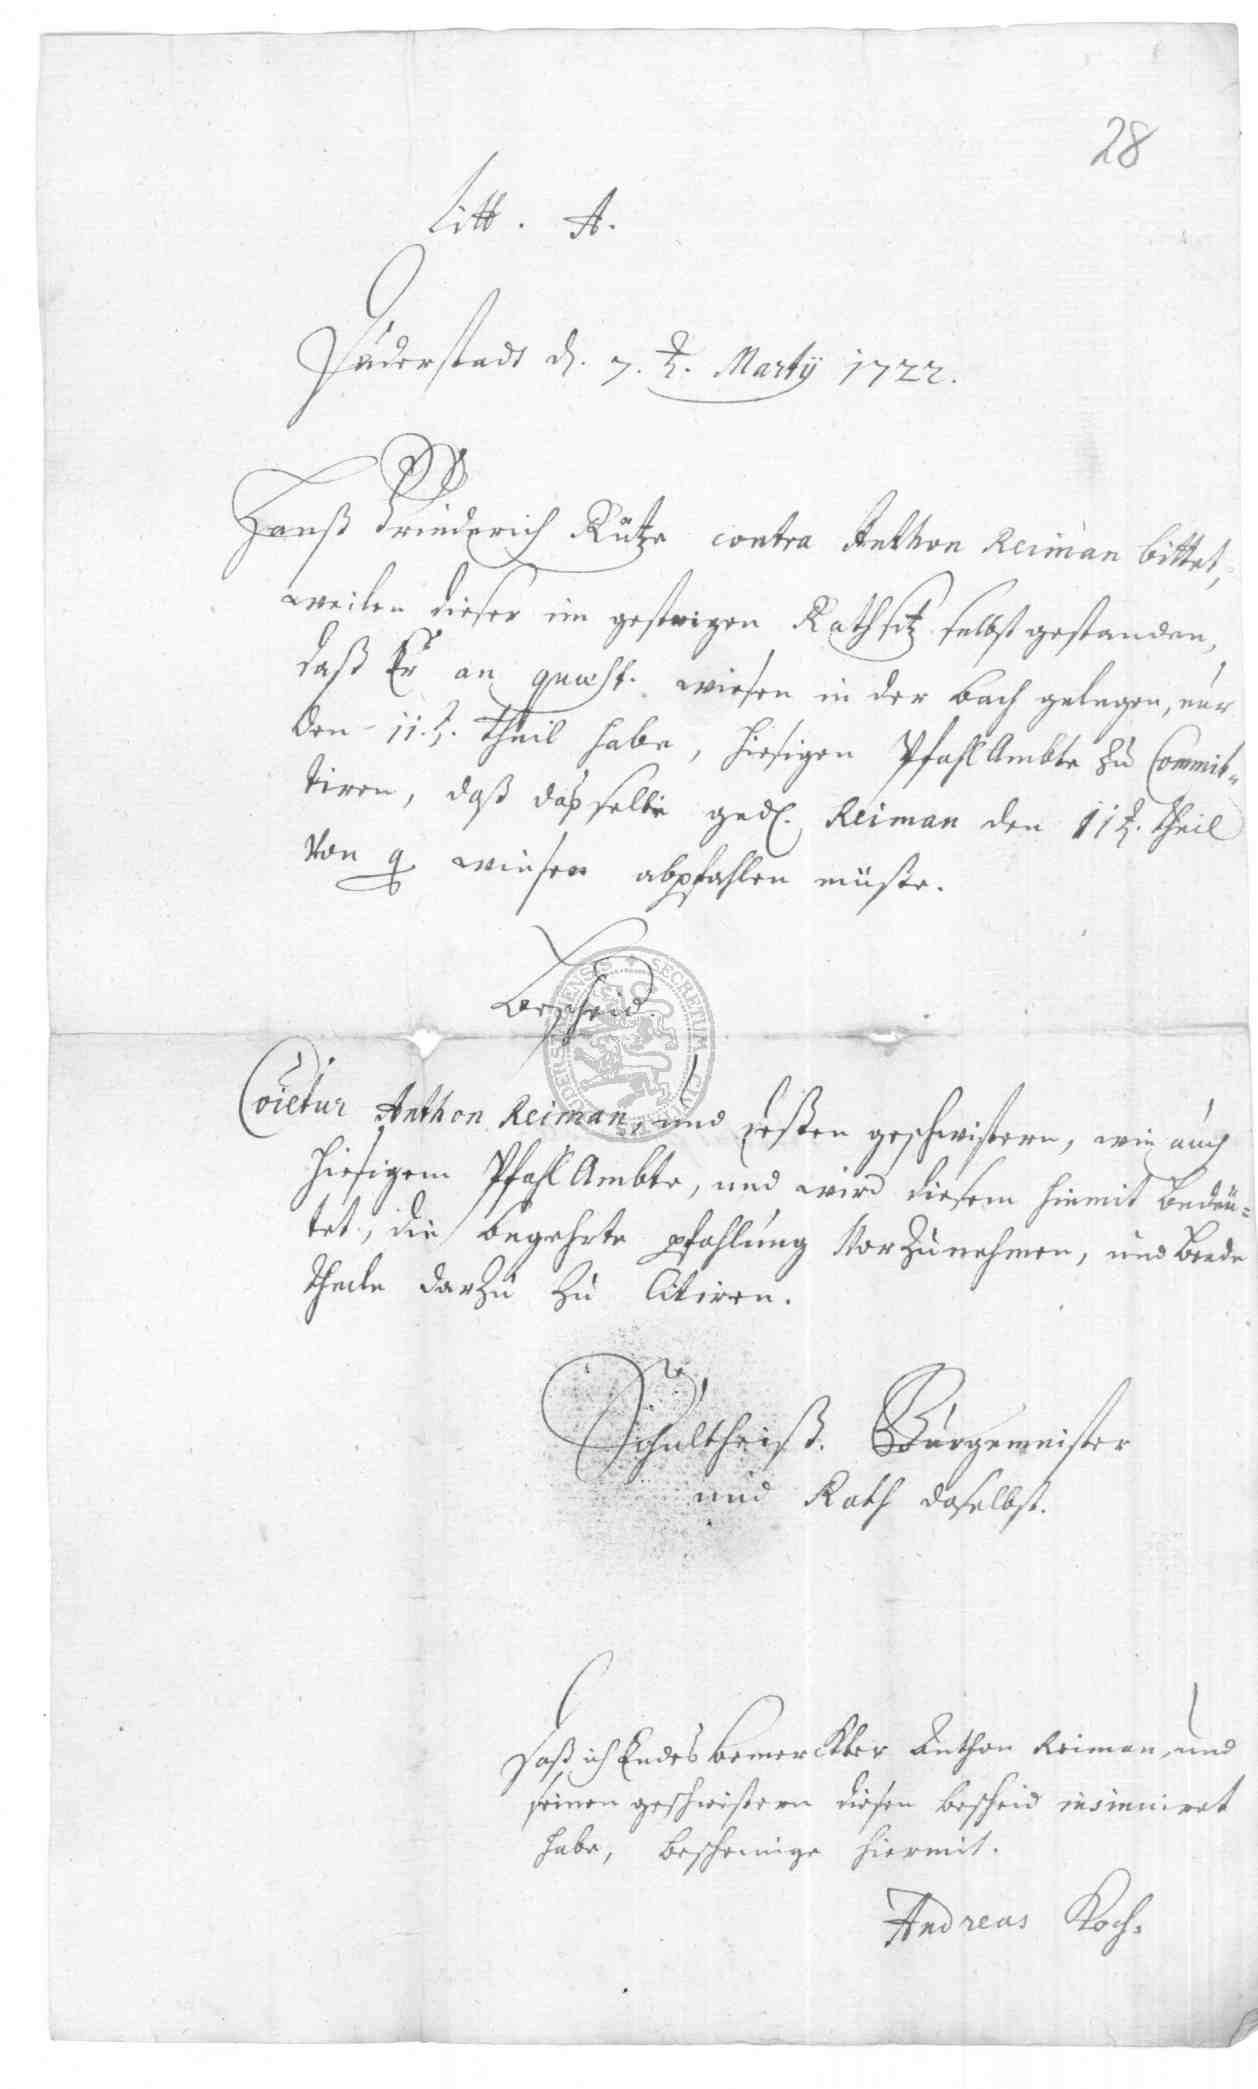 28
Litt. A.
Duderstadt d. 7.t. Martij 1722.
Hanß Friederich Kütze contra Anthon Reiman bittet,
weilen dieser im gestrigen Rathsitz selbst gestanden,
daß Er an quaest. wiesen in der bach gelegen, nur
den 11.t. theil habe, hiesigen Pfahl Ambte zu Commit-
tiren, daß daßselbe ged. Reiman den 11t. theil
von q. wiesen abpfahlen müste.
Bescheid.
SECRETUM CIVI
Coicetur Anthon Reiman, und deßen geschwistern, wie auch
hiesigem Pfahl Ambte, und wird diesem hiemit bedeu-
tet, die begehrte pfahlung Vorzunehmen, und beede
theile darzu zu Citiren.
Schultheiß. Bürgemeister
und Rath daselbst.
Daß ich Endes bemerckter Anthon Reiman, und
seinen geschwistern diesen bescheid insinuiret
habe, bescheinige hiermit.
Andreas Koch.